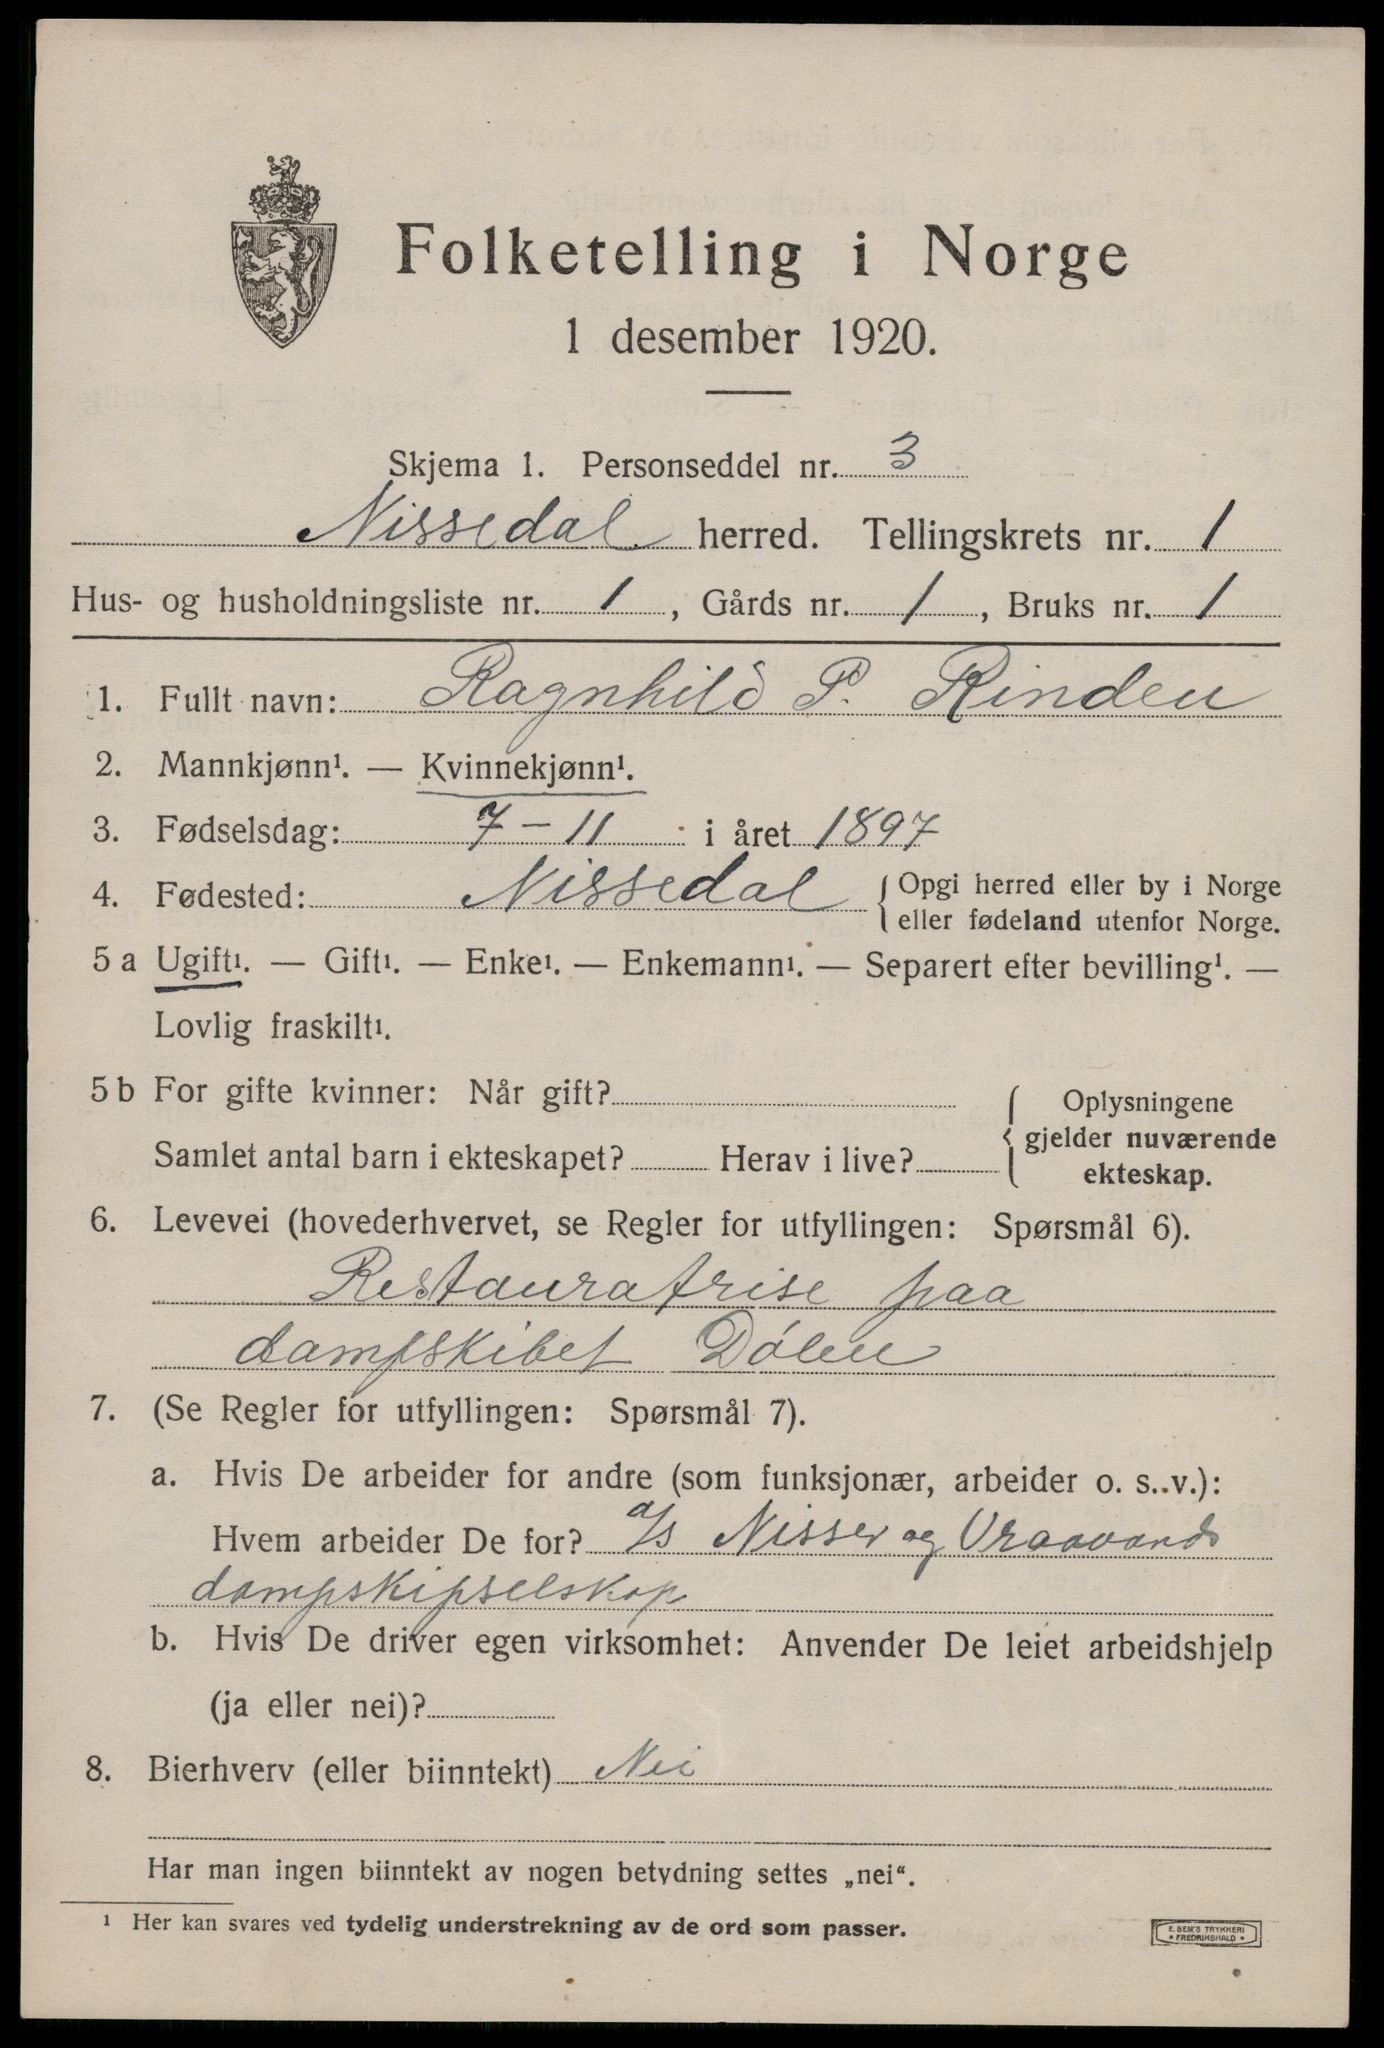 Folketelling i Norge
1 desember 1920.
Skjema 1. Personseddel nr. 3
Nissedal herred. Tellingskrets nr. 1
Hus- og husholdningsliste nr. 1, Gårds nr. 1, Bruks nr. 1
1. Fullt navn: Ragnhild P. Rinden
2. Mannkjønn¹. — Kvinnekjønn¹.
3. Fødselsdag: 7-11 i året 1897
4. Fødested: Nissedal { Opgi herred eller by i Norge
eller fødeland utenfor Norge.
5 a Ugift¹. — Gift¹. — Enke¹. — Enkemann¹. — Separert efter bevilling¹. —
Lovlig fraskilt¹.
5 b For gifte kvinner: Når gift?
Samlet antal barn i ekteskapet? Herav i live?
{ Oplysningene
gjelder nuværende
ekteskap.
6. Levevei (hovederhvervet, se Regler for utfyllingen: Spørsmål 6).
Restauratrise paa
dampskibet Dølen
7. (Se Regler for utfyllingen: Spørsmål 7).
a. Hvis De arbeider for andre (som funksjonær, arbeider o. s..v.):
Hvem arbeider De for? a/s Nisser og Vraavands
dampskipselskap
b. Hvis De driver egen virksomhet: Anvender De leiet arbeidshjelp
(ja eller nei)?
8. Bierhverv (eller biinntekt) Nei
Har man ingen biinntekt av nogen betydning settes „nei“.
¹ Her kan svares ved tydelig understrekning av de ord som passer.
E. SEM'S TRYKKERI
• FREDRIKSHALD •